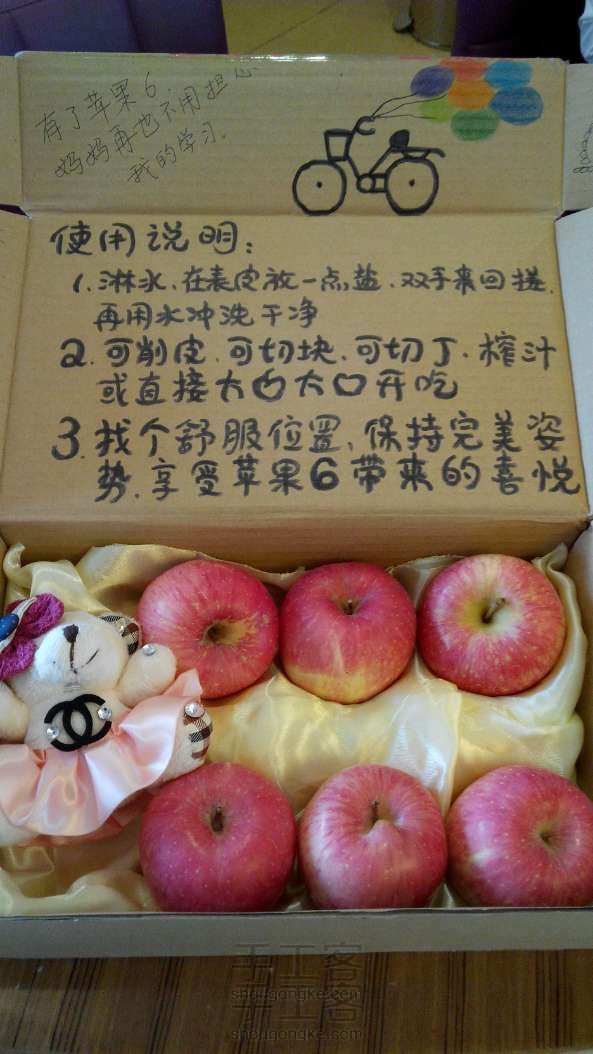 有了苹果6,
妈妈再也不用担心
我的学习.
使用说明:
1.淋水、在表皮放一点盐、双手来回搓,
再用水冲洗干净
2.可削皮、可切块、可切丁、榨汁
或直接大凸大口开吃
3.找个舒服位置、保持完美姿
势.享受苹果6带来的喜悦
手工客
shougongke.com
手工客
shougongke.com